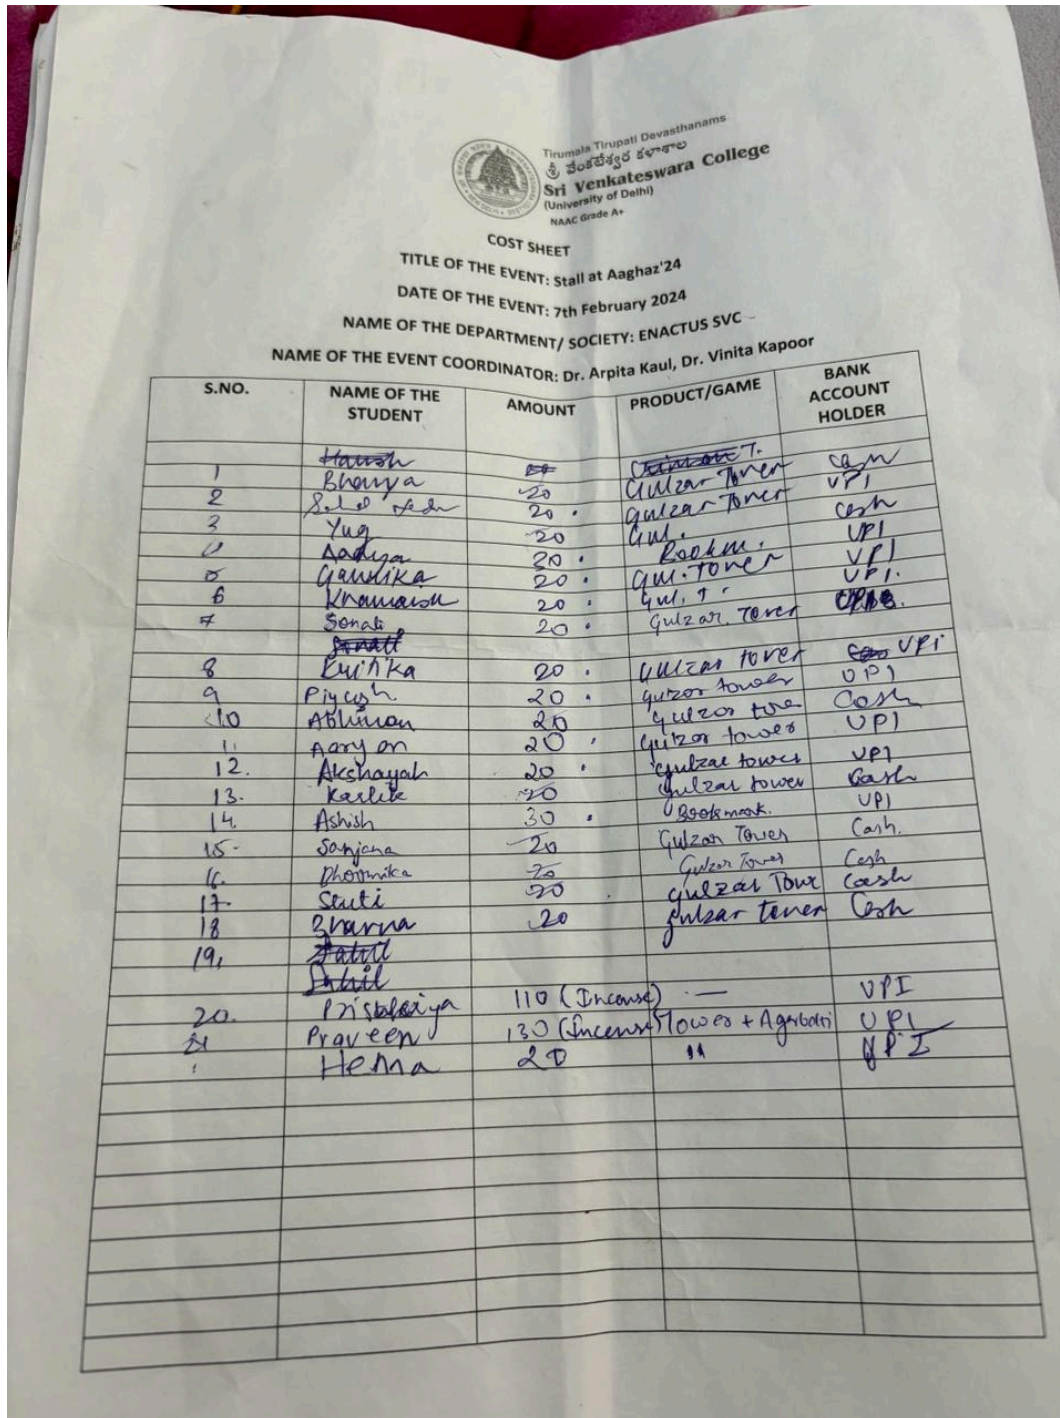 Tirumala Tirupati Devasthanams
శ్రీ వేంకటేశ్వర కళాశాల
Sri Venkateswara College
(University of Delhi)
NAAC Grade A+
COST SHEET
TITLE OF THE EVENT: Stall at Aaghaz'24
DATE OF THE EVENT: 7th February 2024
NAME OF THE DEPARTMENT/ SOCIETY: ENACTUS SVC
NAME OF THE EVENT COORDINATOR: Dr. Arpita Kaul, Dr. Vinita Kapoor
S.NO. NAME OF THE STUDENT AMOUNT PRODUCT/GAME BANK ACCOUNT HOLDER
1 Bhavya 20 Gulzar Tower Cash
2 20 Gulzar Tower UPI
3 Yug 20 Gul. Cash
Aadya 30 Bookm. UPI
5 Gaurika 20 Gul. Tower UPI
6 20 Gul. T. UPI.
7 Sonali 20 Gulzar. Tower
8 Kritika 20 Gulzar tower UPI
9 Piyush 20 Gulzar tower UPI
10 Abhiman 20 Gulzar towe Cash
11. Aaryan 20 Gulzar tower UPI
12. Akshayah 20 Gulzar tower UPI
13. Kartik 20 Gulzar tower Cash
14. Ashish 30 Bookmark. UPI
15. Sanjana 20 Gulzar Tower Cash.
16. Bhoomika 20 Gulzar Tower Cash
17. Stuti 20 Gulzar Towr Cash
18 Bhavna 20 gulzar tower Cash
19. Sahil
20. 110 (Incense) — UPI
21 Praveen 130 (Incense) Tower + Agarbatti UPI
Hema 20 " UPI